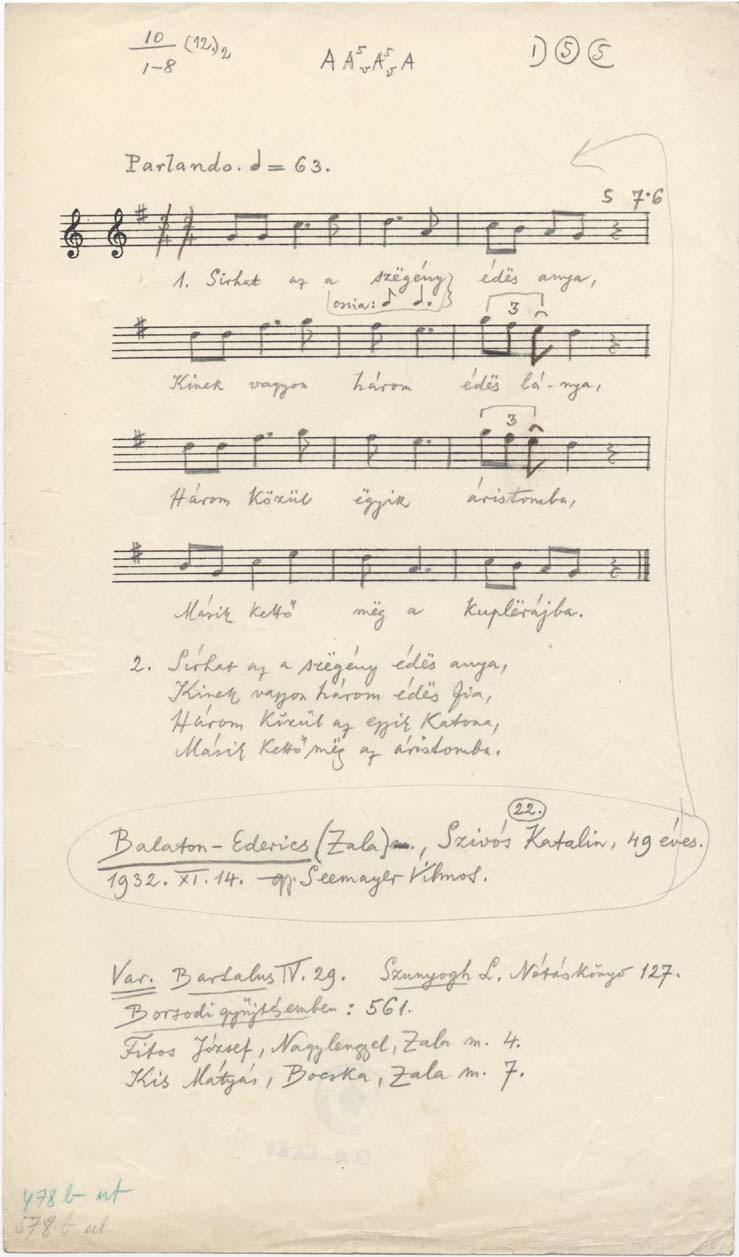 10 (12.)2
1-8
A A⁵ᵥ A⁵ᵥ A
1) 5 5
Parlando. = 63.
5 7·6
1. Sirhat az a szëgény édës anya,
(ossia:
3
Kinek vagyon három édës lá-nya,
3
Három közül ëgyik áristomba,
Másik kettő még a kuplërájba.
2. Sírhat az a szëgény édës anya,
Kinek vagyon három édës fia,
Három közül az egyik katona,
Másik kettő mëg az áristomba.
22.
Balaton-Ederics (Zala), Szivós Katalin, 49 éves.
1932. XI. 14. gy. Seemayer Vilmos.
Var. Bartalus IV. 29. Szunyogh L. Nótáskönyv 127.
Borsodi gyűjtésemben: 561.
Fitos József, Nagylengyel, Zala m. 4.
Kis Mátyás, Bocska, Zala m. 7.
478 b ut
578 b ut